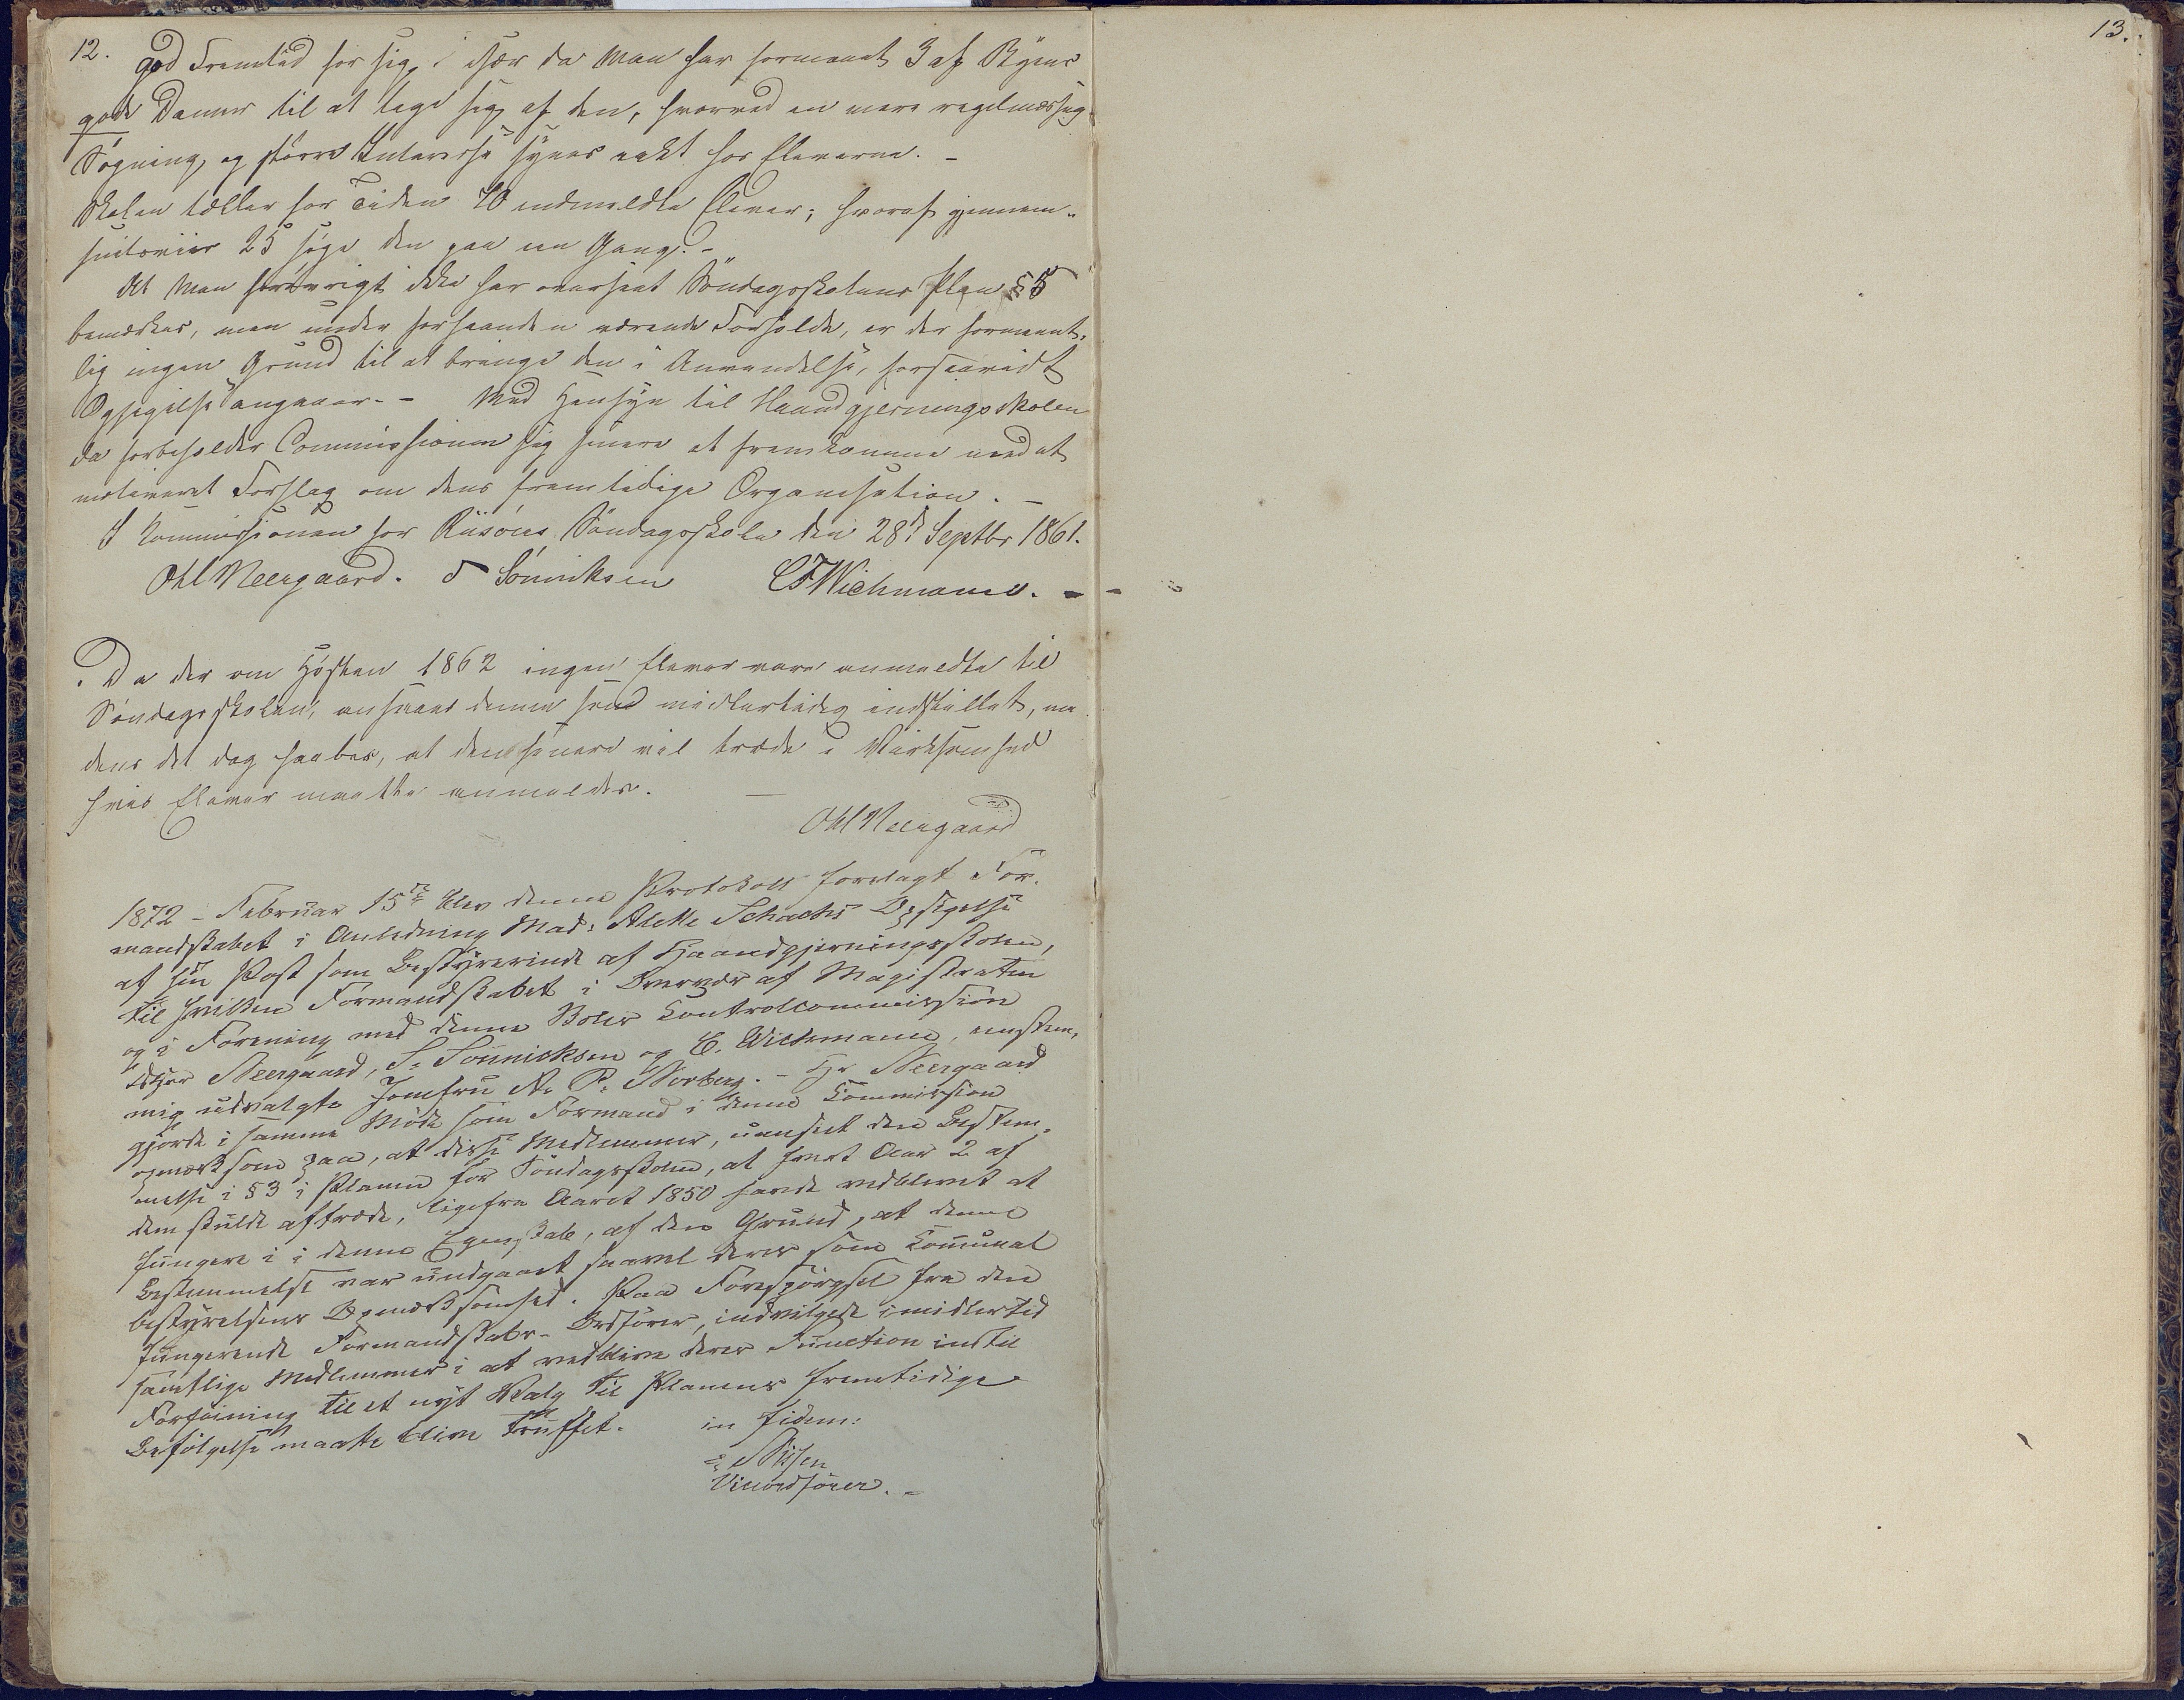 12.
god Fremtid for sig, især da man har formaaet 3 af Byens
gode Damer til at tage sig af den, hvorved en mere regelmæssig
Søgning, og større Interesse synes vakt hos Eleverne. –
Skolen tæller for Tiden 40 indmeldte Elever; hvoraf gjennem-
snitsviis 25 søge den paa een Gang. –
At man forövrigt ikke har overseet Söndagsskolens Plan § 5
bemærkes, men under forhaanden værende Forholde, er der forment-
lig ingen Grund til at bringe den i Anvendelse, forsaavidt
Opsigelse angaaer. – Med Hensyn til Haandgjerningsskolen
da forbeholder Commissionen sig senere at fremkomme med et
motiveret Forslag om dens fremtidige Organisation. –
I Kommissionen for Riisöers Söndagsskole den 28d Septbr 1861.
Ohl Neergaard. S Sönniksen CF Wichmann. –
Da der om Høsten 1862 ingen Elever vare anmeldte til
Söndagsskolen, ansaaes denne som midlertidig indstillet, me
dens det dog haabes, at den senere vil træde i Virksomhed
hvis Elever maatte anmeldes. –
Ohl Neergaard
1872 – Februar 15de blev denne Protokoll forelagt For-
mandskabet i Anledning Mad: Alette Schachts Opsigelse
af sin Post som Bestyrerinde af Haandgjerningsskolen,
til hvilken Formandskabet i Overvær af Magistraten
og i Forening med denne Skoles Controlcommission
DHrr Neergaard, S. Sönnicksen og C. Wichmann, enstem-
mig udvalgte Jomfru A. P. Norberg. – Hr Neergaard
gjorde i samme Möde som Formand i denne Commission
opmærksom paa, at disse Medlemmer, uanseet den Bestem-
melse i § 3 i Planen for Söndagsskolen, at hvert Aar 2 af
dem skulde aftræde, ligefra Aaret 1850 havde vedblevet at
fungere i i denne Egenskab, af den Grund, at denne
Bestemmelse var undgaaet saavel deres som Communal
bestyrelsens Opmærksomhed. Paa Forespörgsel fra den
fungerende Formandskabs-Ordförer, indvilgede imidlertid
samtlige Medlemmer i at vedblive deres Function indtil
Forföining til et nyt Valg til Planens fremtidige
Befölgelse maatte blive truffet. in fidem:
Viceordförer. –
13.